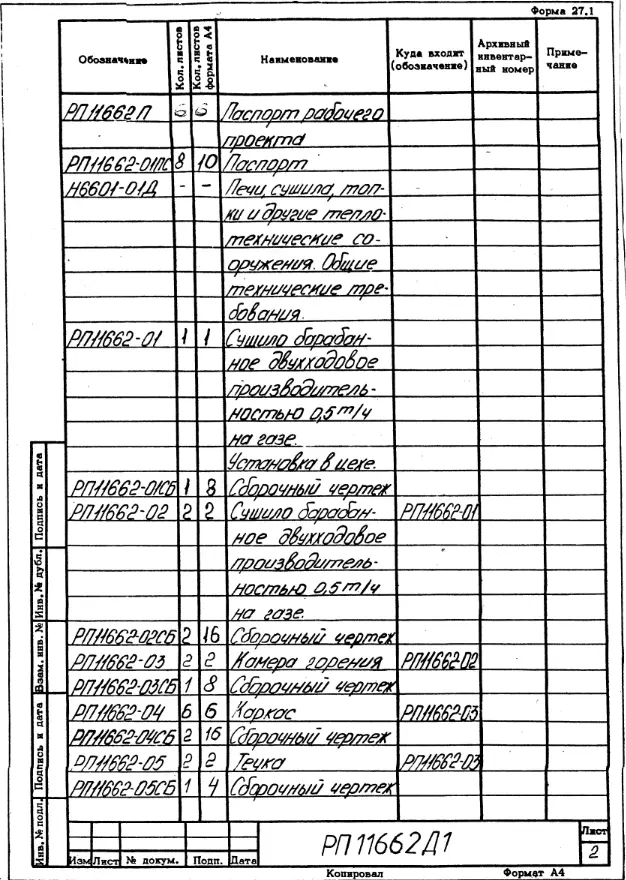 Форма 27.1
Обозначение Кол. листов Кол. листов формата А4 Наименование Куда входит (обозначение) Архивный инвентарный номер Примечание
РП11662П 6 6 Паспорт рабочего
проекта
РП11662-01ПС 8 10 Паспорт
Н6601-01Д - - Печи, сушила, топ-
ки и другие тепло-
технические со-
оружения. Общие
технические тре-
бования.
РП11662-01 1 1 Сушило барабан-
ное двухходовое
производитель-
ностью 0,5 т/ч
на газе.
Установка в цехе.
РП11662-01СБ 1 8 Сборочный чертеж
РП11662-02 2 2 Сушило барабан- РП11662-01
ное двухходовое
производитель-
ностью 0,5 т/ч
на газе.
РП11662-02СБ 2 16 Сборочный чертеж
РП11662-03 2 2 Камера горения РП11662-02
РП11662-03СБ 1 8 Сборочный чертеж
РП11662-04 6 6 Каркас РП11662-03
РП11662-04СБ 2 16 Сборочный чертеж
РП11662-05 2 2 Течка РП11662-03
РП11662-05СБ 1 4 Сборочный чертеж
Инв. № подл. Подпись и дата Взам. инв. № Инв. № дубл. Подпись и дата
Изм Лист № докум. Подп. Дата
РП11662Д1
Лист
2
Копировал Формат А4